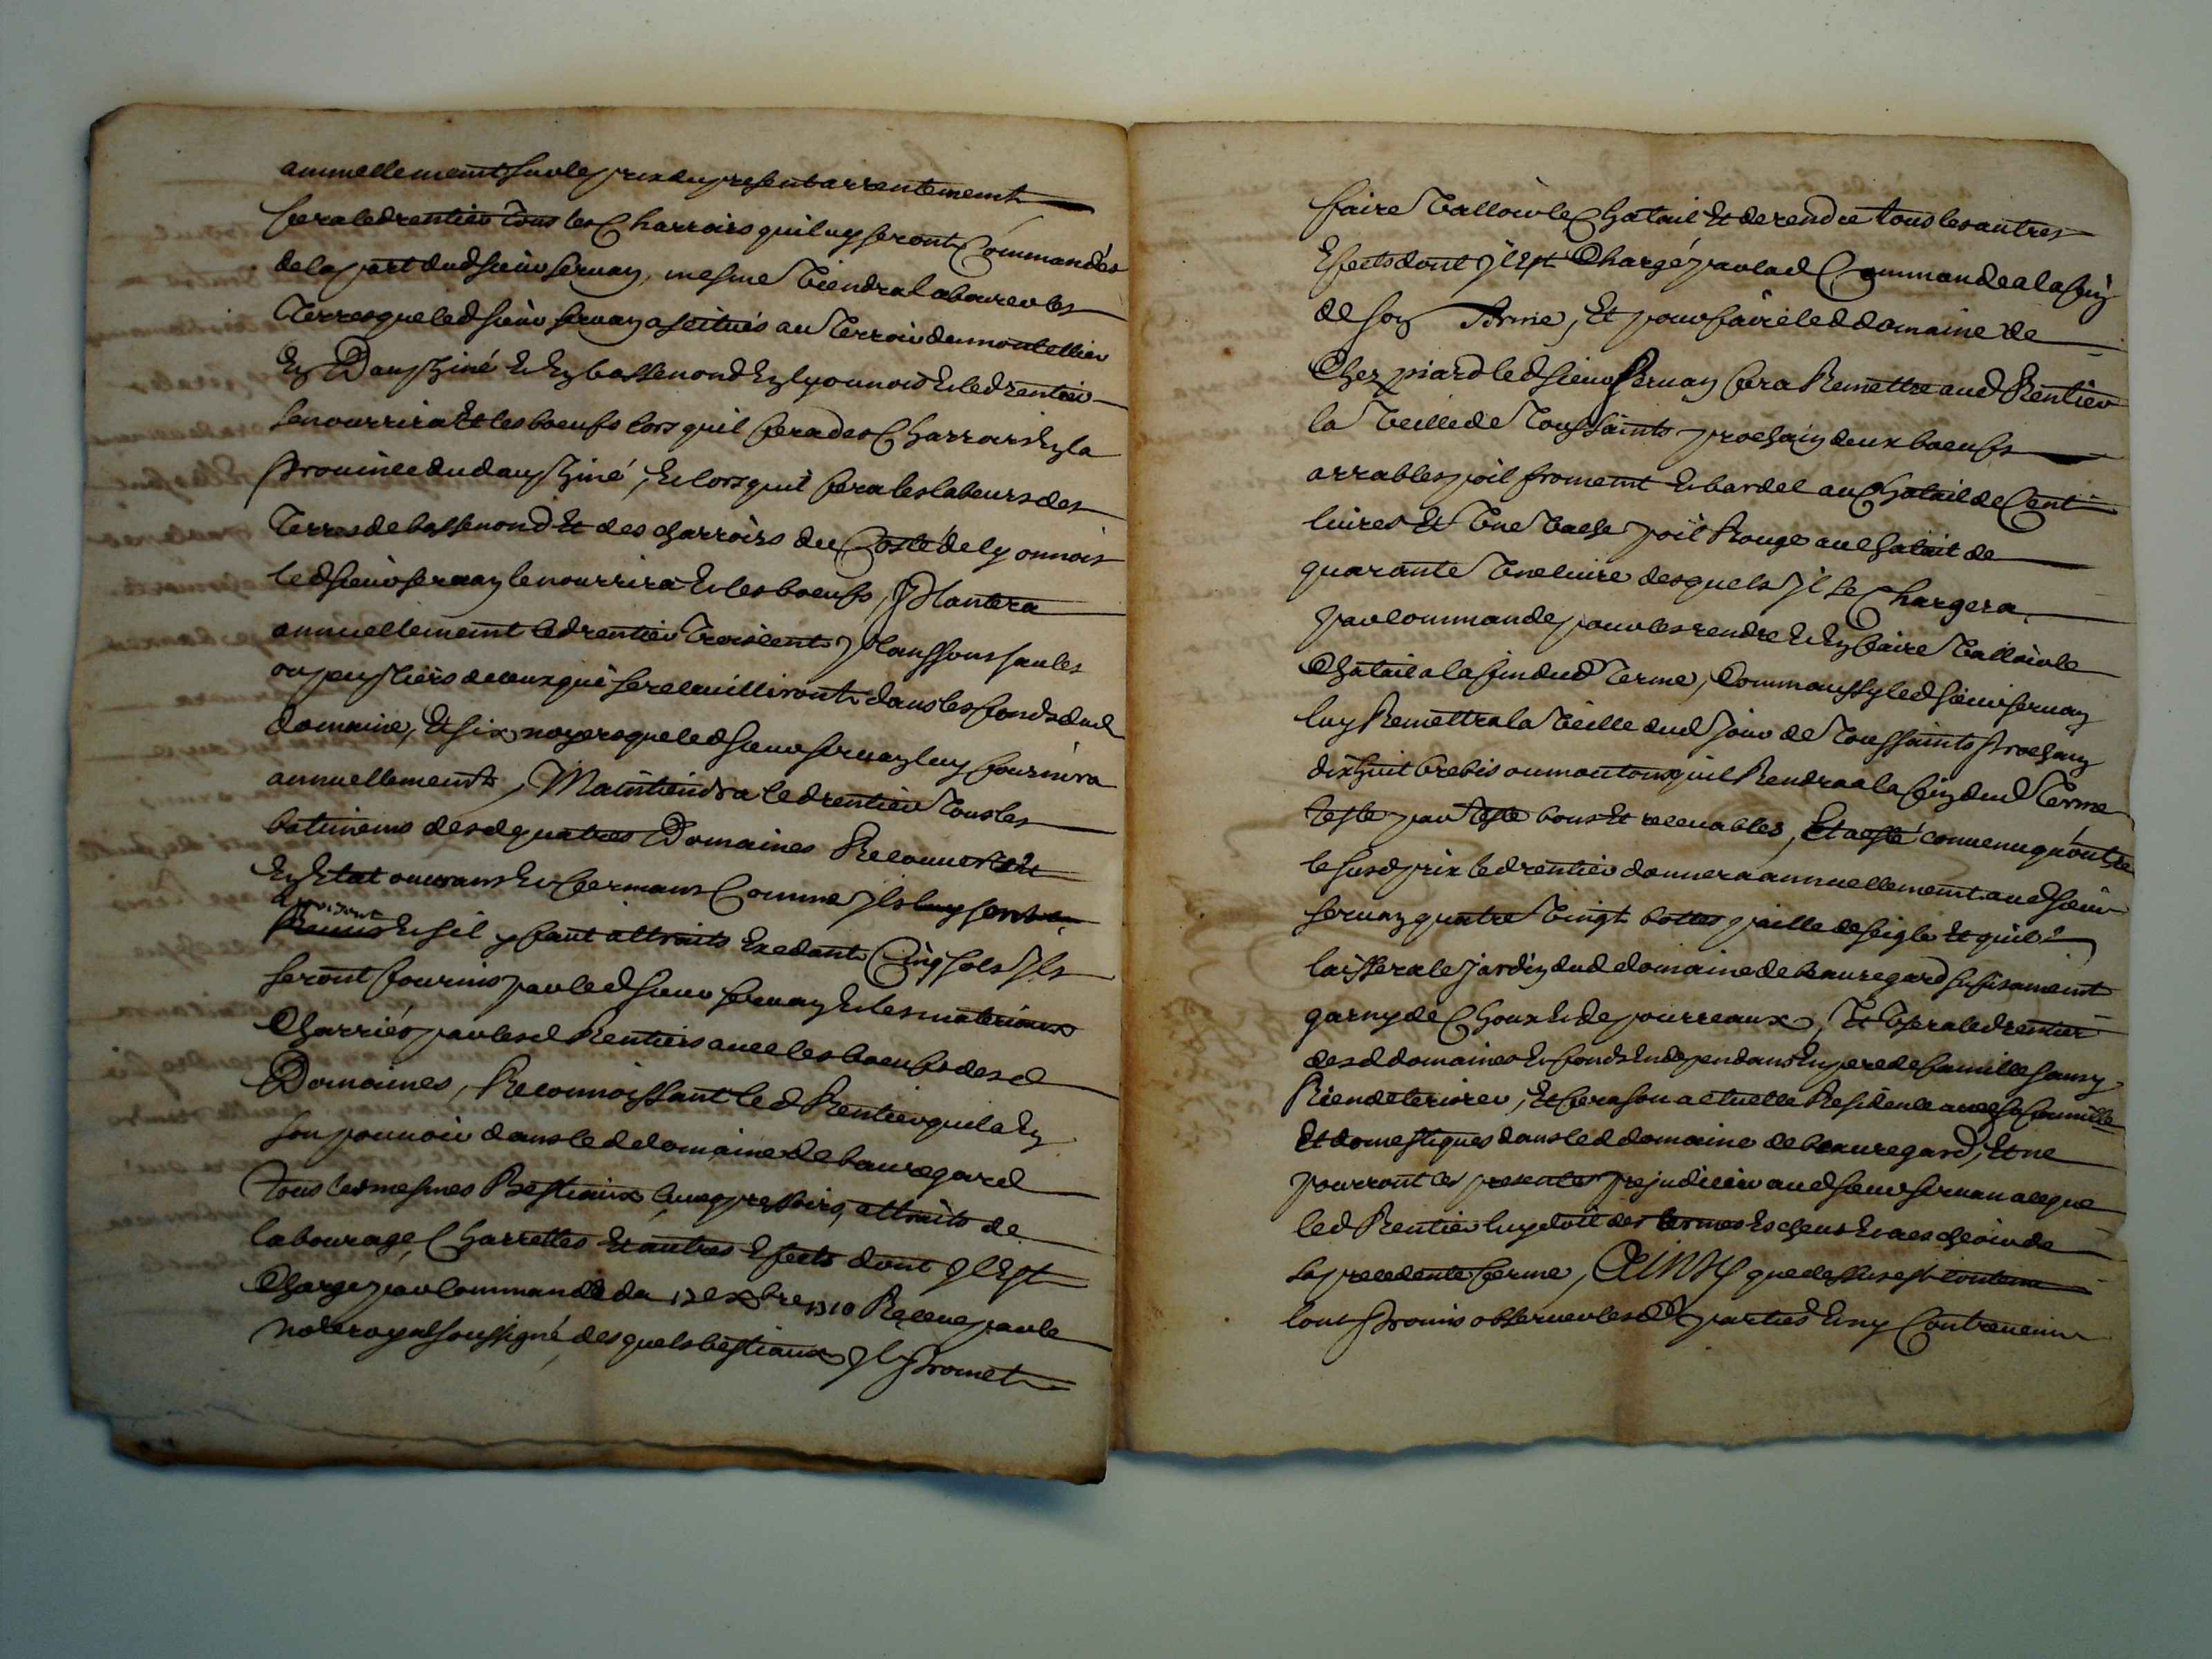 annuellement sur le prix du present arrentement
fera led rentier tous les charrois quil luy seront commandés
de la part dud sieur seruan, mesme viendra labourer les
Terres que led sieur seruan a scituées au Terroir du montellier
En Dauphiné & En bassenond En lyonnois Et led rentier
se nourrira Et les boeufs lors quil fera des Charrois En la
prouince du dauphiné, Et lors quil fera les labeurs des
Terres de bassenond Et des charrois du Costé de lyonnois
led sieur seruan le nourrira Et les boeufs, Plantera
annuellement led rentier Trois cents plansons saules
ou peupliers de ceux qui se recuilliront dans les fonds dud
domaine, Et six noyers que led sieur seruan luy fournira
annuellement, Maintiendra led rentier Tous les
batimens desd quatres Domaines Recouuert Et
En Etat ouurans Et fermans Comme Ils luy
Et sil y faut attraits Exedants Cinq sols Ils
seront fournis par led sieur seruan Et les materiaux
Charriés par lesd Rentiers auec les boeufs desd
Domaines, Reconnoissant led Rentier quil a En
son pouuoir dans led domaine de bauregard
tous les mesmes Bestiaux pressoirs, attraits de
labourage, Charrettes Et autres Effects dont Il Est
Chargé par Commande du Receue par le
no.re royal soussigné, desquels bestiaux Il promet
faire Valloir le Chatail Et de rendre tous les autres
Effects dont Il Est Chargé par lad Commande a la fin
de son Terme, Et pour faire led domaine de
Chez piard led sieur Seruan fera Remettre aud Rentier
la Veille de Toussaints prochain deux boeufs
arrables poil froment Et bardel au Chatail de Cent
liures Et Vne Vache poil Rouge au Chatail de
quarante Vne liure desquels Il se Chargera
par Commande pour les rendre Et En faire Valloir le
Chatail a la fin dud Terme, Comm aussy led sieur seruan
luy Remettra la Veille dud Jour de Toussaints prochain
dix huit brebis ou moutons quil Rendra a la fin dud Terme
teste par teste bons Et receuables, Et a esté conuenu qu'outre
le susd prix led rentier donnera annuellement aud sieur
seruan quatre Vingt bottes paille de seigle Et quil
laissera le jardin dud domaine de beauregard sufisament
garny de Choux Et de pourreaux, Et Vsera led rentier
desd domaines Et fonds En dependans En pere de famille sans y
Rien deteriorer, Et fera son actuelle Residence auec sa famille
Et domestiques dans led domaine de beauregard, Et ne
pourront les presentes prejudicier aud sieur seruan a ce que
led Rentier luy doit des termes Escheus Et a escheoir de
sa precedente ferme, AINSY que dessus est contenu
l'ont promis obseruer lesd parties Et n'y Contreuenir